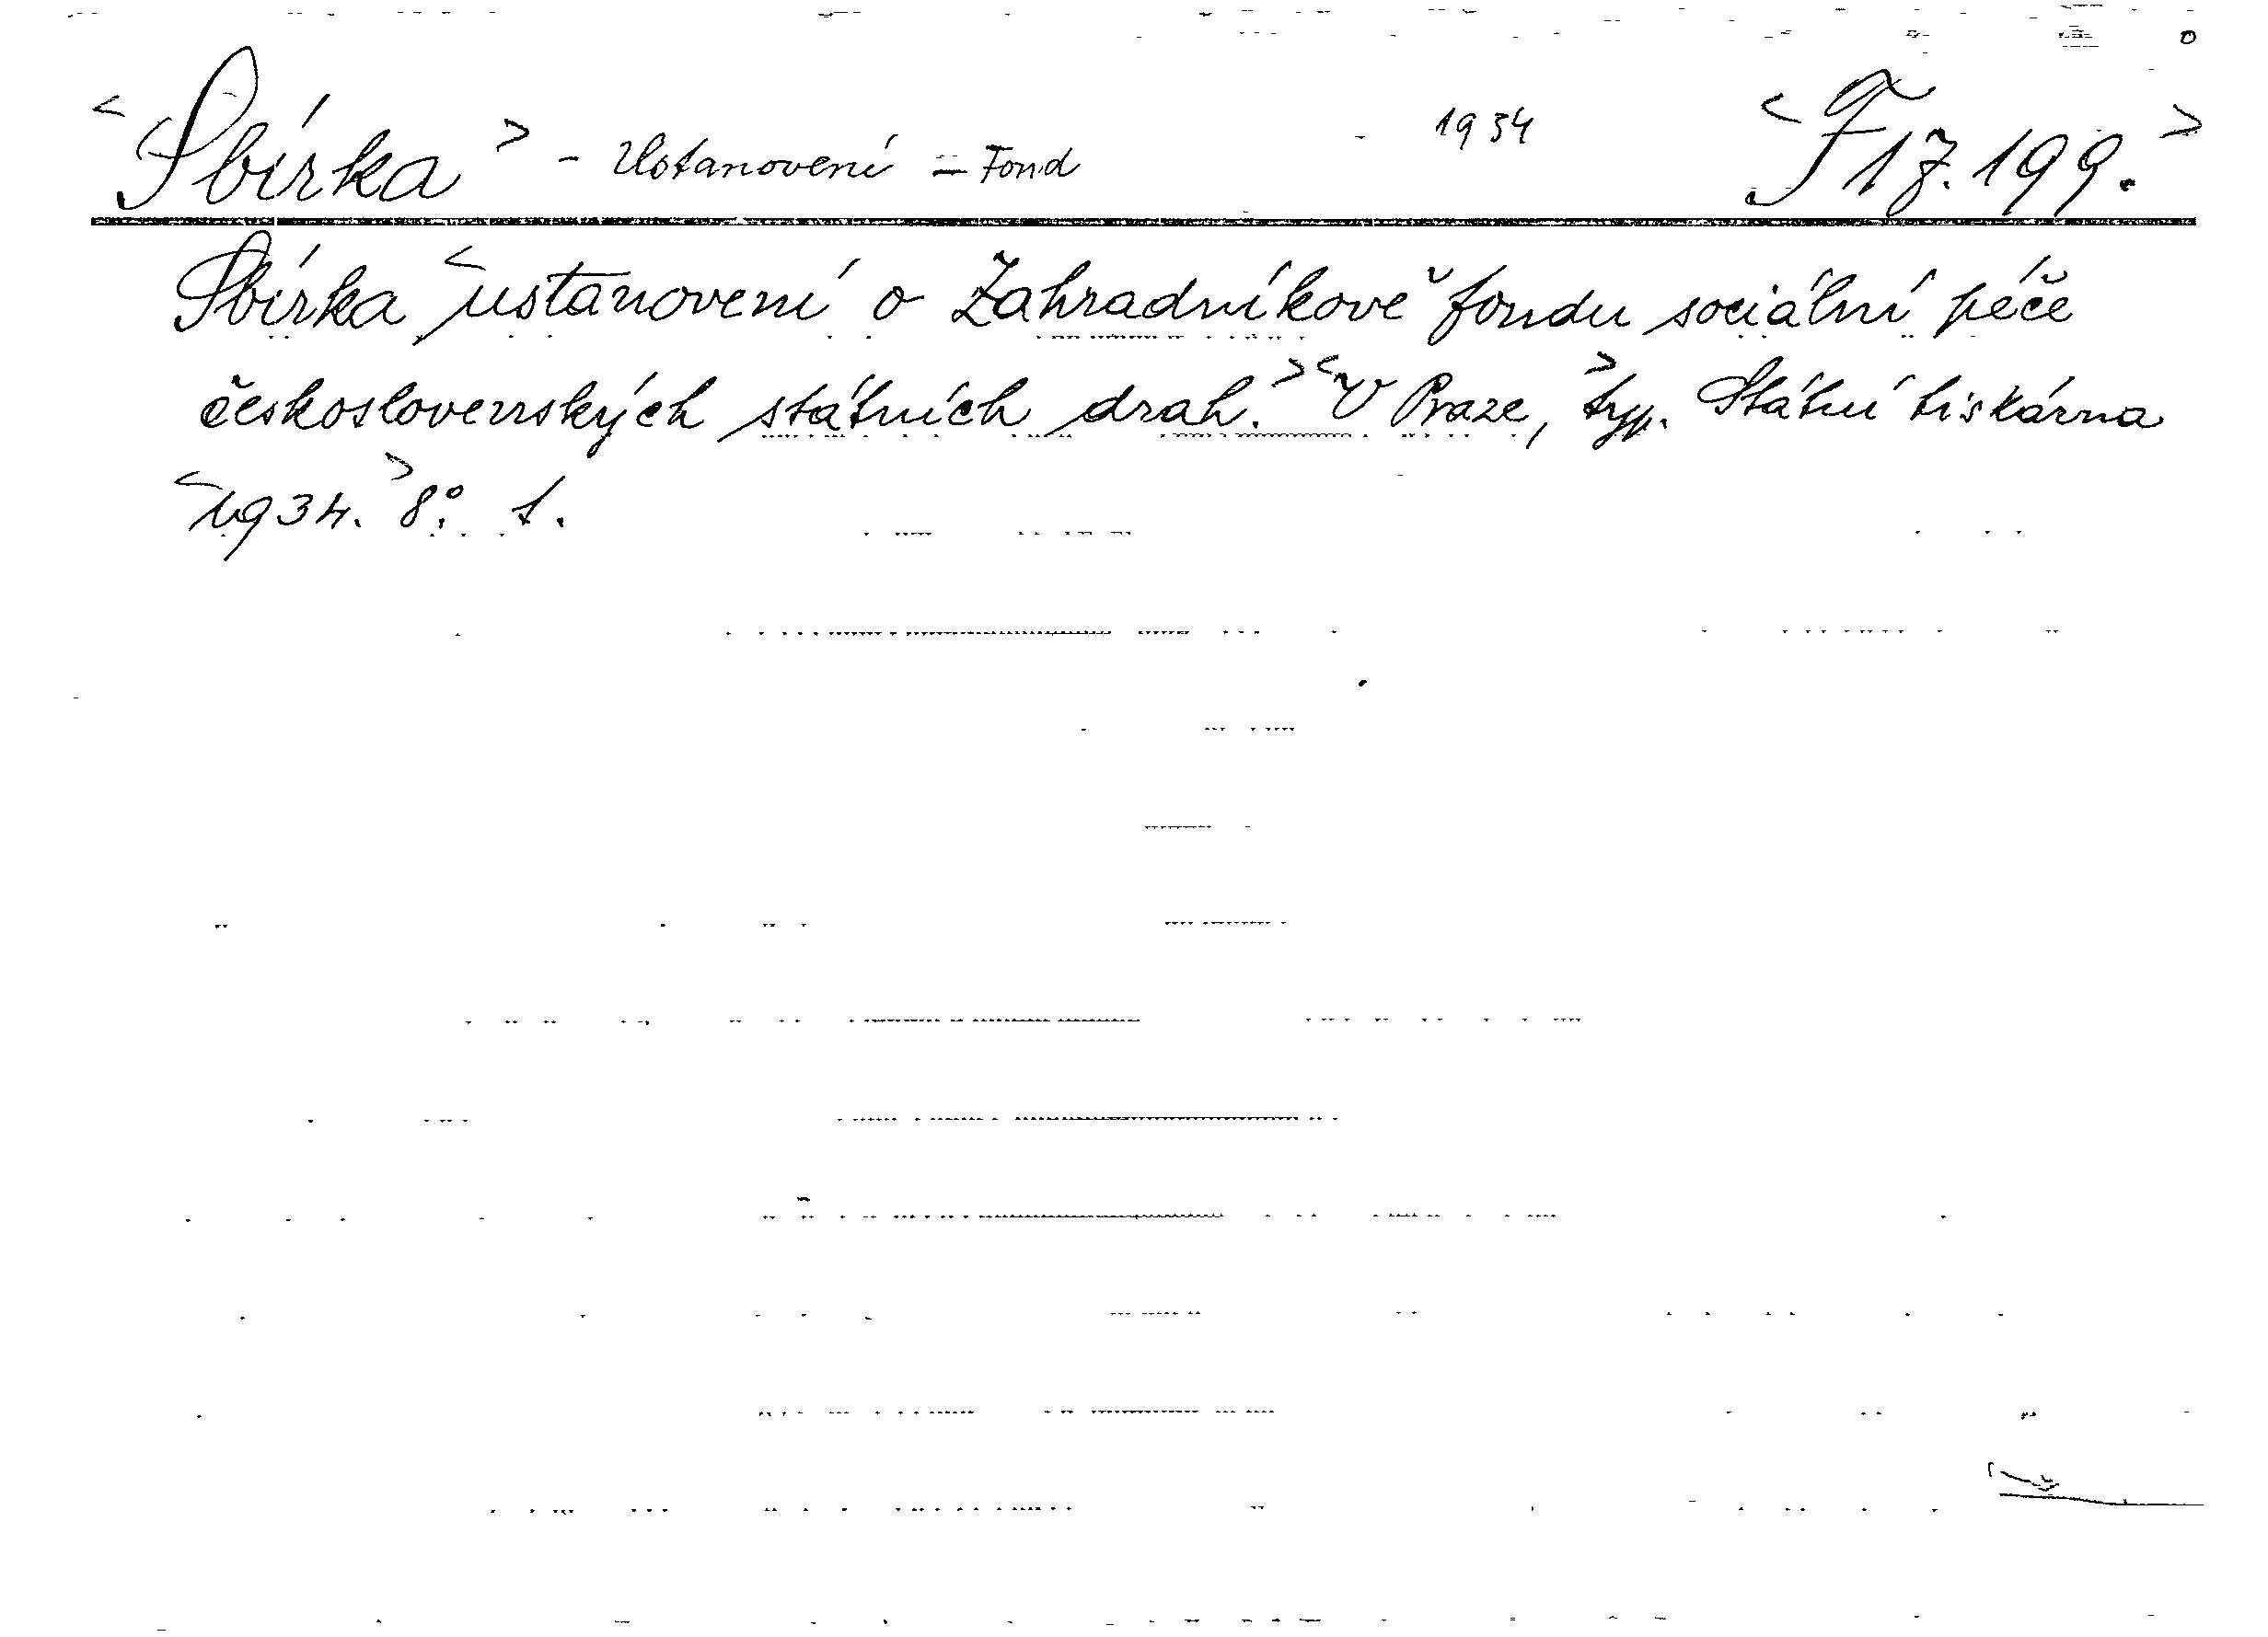 <Sbírka> - Ustanovení - Fond - 1934 <F 17.199.>
Sbírka <ustanovení o Zahradníkově fondu sociální péče
československých státních drah.> <V Praze,> typ. Státní tiskárna
<1934.> 8°. 1.